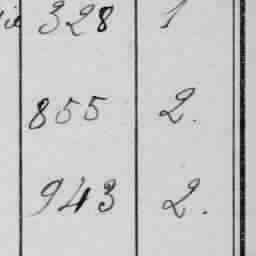 328 1
855 2.
943 2.